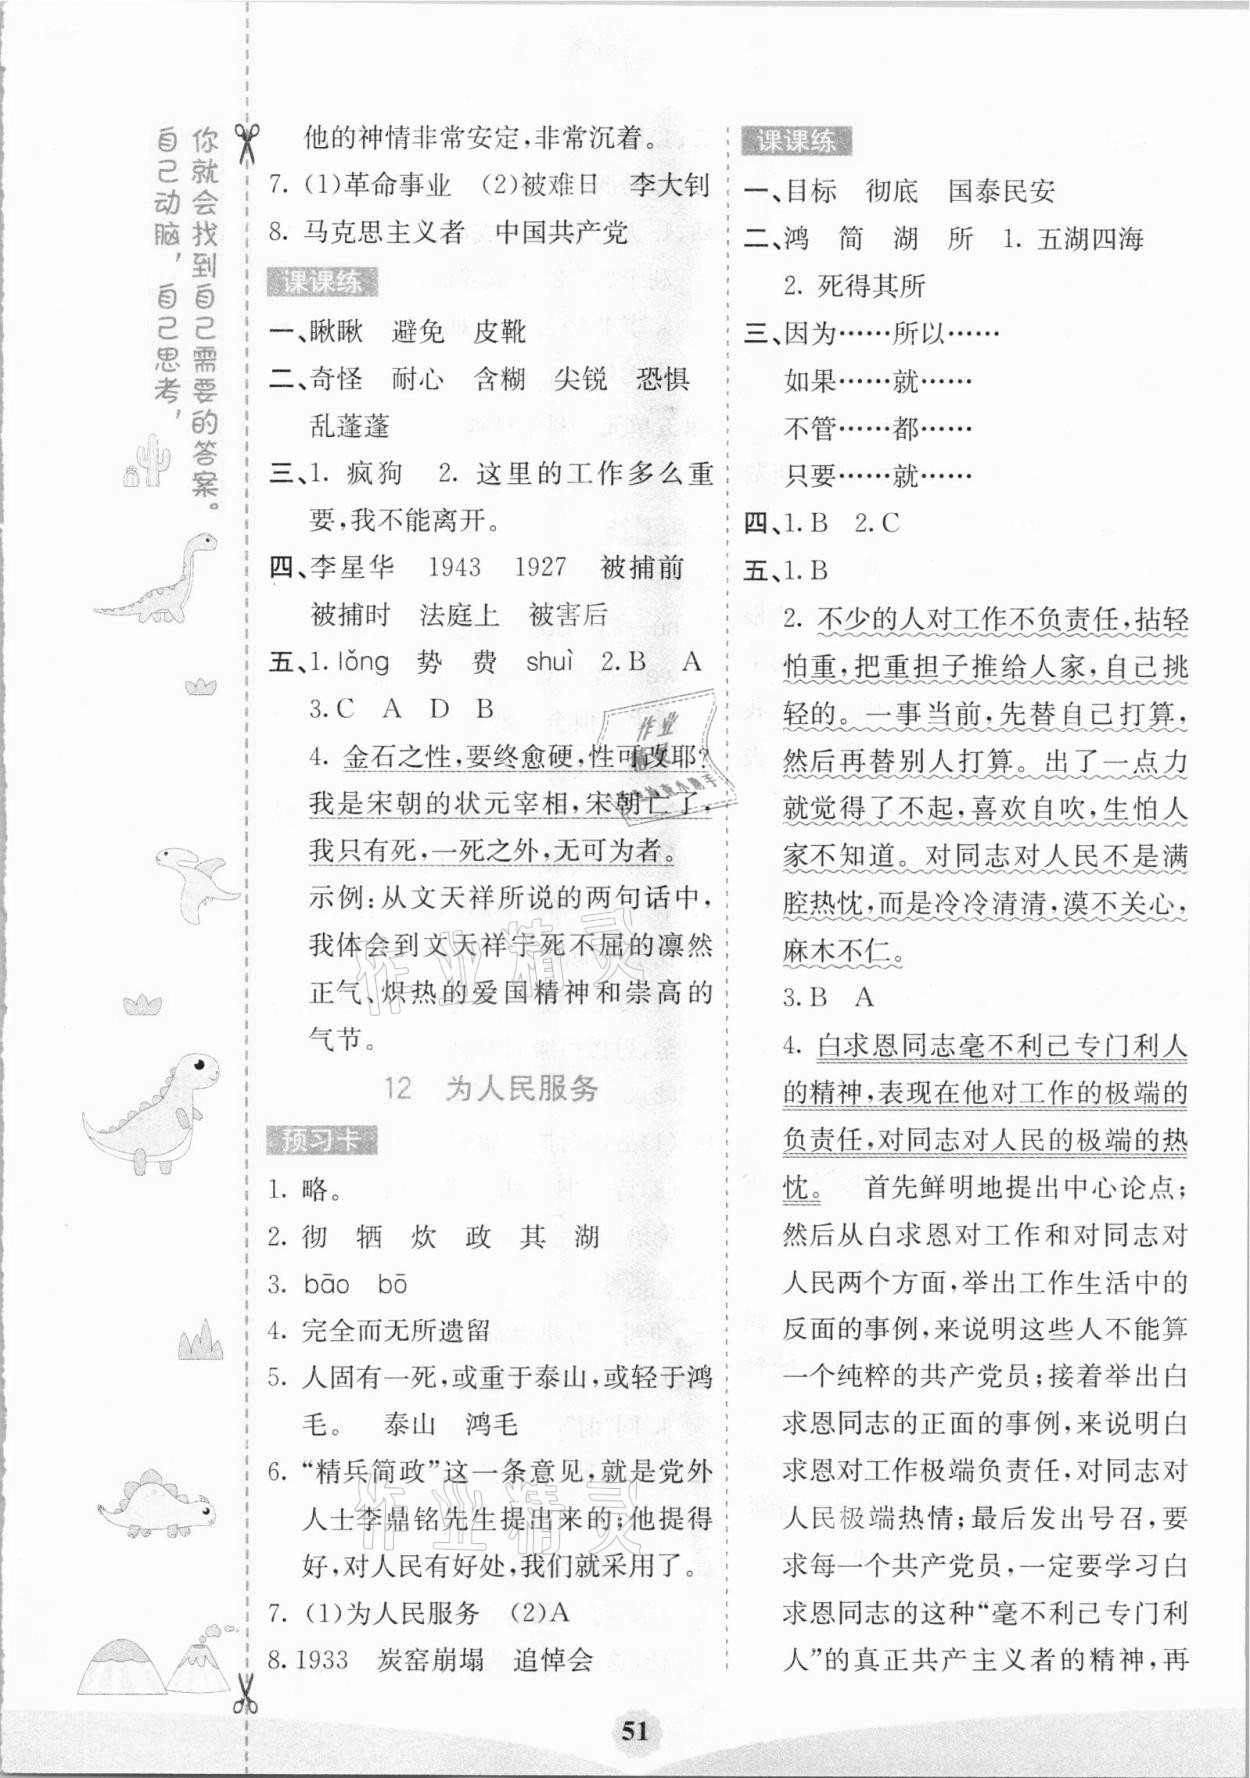 你就会找到自己需要的答案。
自己动脑，自己思考，
他的神情非常安定，非常沉着。
7. (1)革命事业　(2)被难日　李大钊
8. 马克思主义者　中国共产党
课课练
一、瞅瞅　避免　皮靴
二、奇怪　耐心　含糊　尖锐　恐惧
乱蓬蓬
三、1. 疯狗　2. 这里的工作多么重
要，我不能离开。
四、李星华　1943　1927　被捕前
被捕时　法庭上　被害后
五、1. lǒng　势　费　shuì　2. B　A
3. C　A　D　B
4. 金石之性，要终愈硬，性可改耶？
我是宋朝的状元宰相，宋朝亡了，
我只有死，一死之外，无可为者。
示例：从文天祥所说的两句话中，
我体会到文天祥宁死不屈的凛然
正气、炽热的爱国精神和崇高的
气节。
12　为人民服务
预习卡
1. 略。
2. 彻　牺　炊　政　其　湖
3. bāo　bō
4. 完全而无所遗留
5. 人固有一死，或重于泰山，或轻于鸿
毛。　泰山　鸿毛
6. “精兵简政”这一条意见，就是党外
人士李鼎铭先生提出来的；他提得
好，对人民有好处，我们就采用了。
7. (1)为人民服务　(2)A
8. 1933　炭窑崩塌　追悼会
课课练
一、目标　彻底　国泰民安
二、鸿　简　湖　所　1. 五湖四海
2. 死得其所
三、因为……所以……
如果……就……
不管……都……
只要……就……
四、1. B　2. C
五、1. B
2. 不少的人对工作不负责任，拈轻
怕重，把重担子推给人家，自己挑
轻的。一事当前，先替自己打算，
然后再替别人打算。出了一点力
就觉得了不起，喜欢自吹，生怕人
家不知道。对同志对人民不是满
腔热忱，而是冷冷清清，漠不关心，
麻木不仁。
3. B　A
4. 白求恩同志毫不利己专门利人
的精神，表现在他对工作的极端的
负责任，对同志对人民的极端的热
忱。　首先鲜明地提出中心论点；
然后从白求恩对工作和对同志对
人民两个方面，举出工作生活中的
反面的事例，来说明这些人不能算
一个纯粹的共产党员；接着举出白
求恩同志的正面的事例，来说明白
求恩对工作极端负责任，对同志对
人民极端热情；最后发出号召，要
求每一个共产党员，一定要学习白
求恩同志的这种“毫不利己专门利
人”的真正共产主义者的精神，再
作业精灵
作业精灵
51